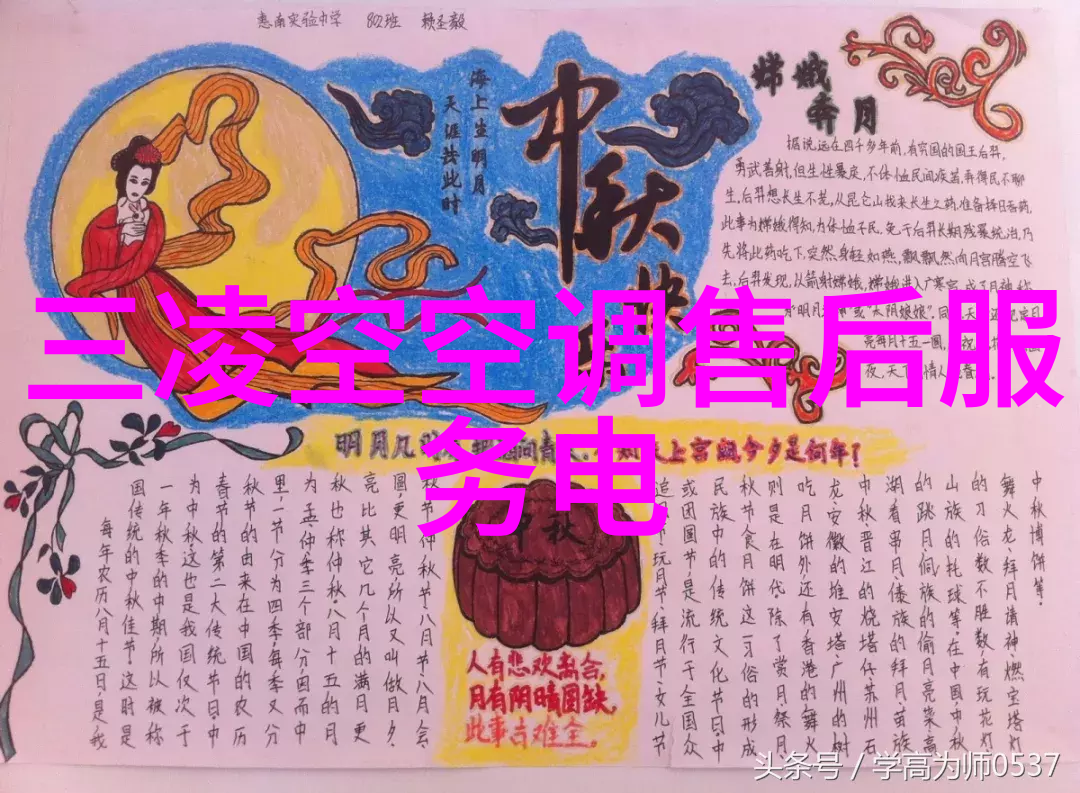 惠南实验中学 802班 赖圣毅
海上生明月
天涯共此时
中秋快
嫦娥
奔月
据说远在四千多年前,有穷国的国王后羿,
勇武善射,但生性暴戾,不体恤民间疾苦,弄得民不聊
生,后羿想长生不老,从昆仑山找来长生之药,准备择日吞药,
此事为嫦娥得知,为体恤千民,免于后羿长期残暴统治,乃
先将此药吃下,突然身轻如燕,飘飘然向月宫腾空飞
去,后羿发现,以箭射嫦娥,嫦娥进入广寒宫,成了月神,称
"明月 "或"太阴娘娘"。同
亮每月十五一圆,
夜,天下 情人
三凌空空调售后服
务电
明月几时 问青 上宫阙今夕是何年?
每年农历八月十五日,是我
国传统的中秋佳节。这时是
一年秋季的中期,所以被称
为中秋。这也是我国仅次于
春节的第二大传统节日。中
秋节的由来在中国的农历
里,一节分为四季,每季又分
为孟、仲、季三个部分,因而中
秋也称仲秋。八月十五的月
亮比其它几个月的满月更
圆,更明亮,所以又叫做月夕,
秋节、仲秋节、八月节、八月会
中秋
人有悲欢离合,
月有阴晴圆缺,
此事古难全。
追月节、玩月节、拜月节、女儿节
或团圆节,是流行于全国众
民族中的传统文化节日,中
秋节食月饼这一习俗的形成
则是在明代。除了赏月、祭月、
吃月饼外,还有香港的舞火
龙、安徽的堆宝塔、广州的树
中秋、晋江的烧塔仔、苏州石
湖看串月、傣族的拜月、苗族
的跳月、侗族的偷月亮菜、高
山族的托球等。在中国,中秋
的习俗数不胜数,有玩花灯、
舞火龙、拜月请神、燃宝塔灯、
中秋博饼等。
头条号 / 学高为师0537